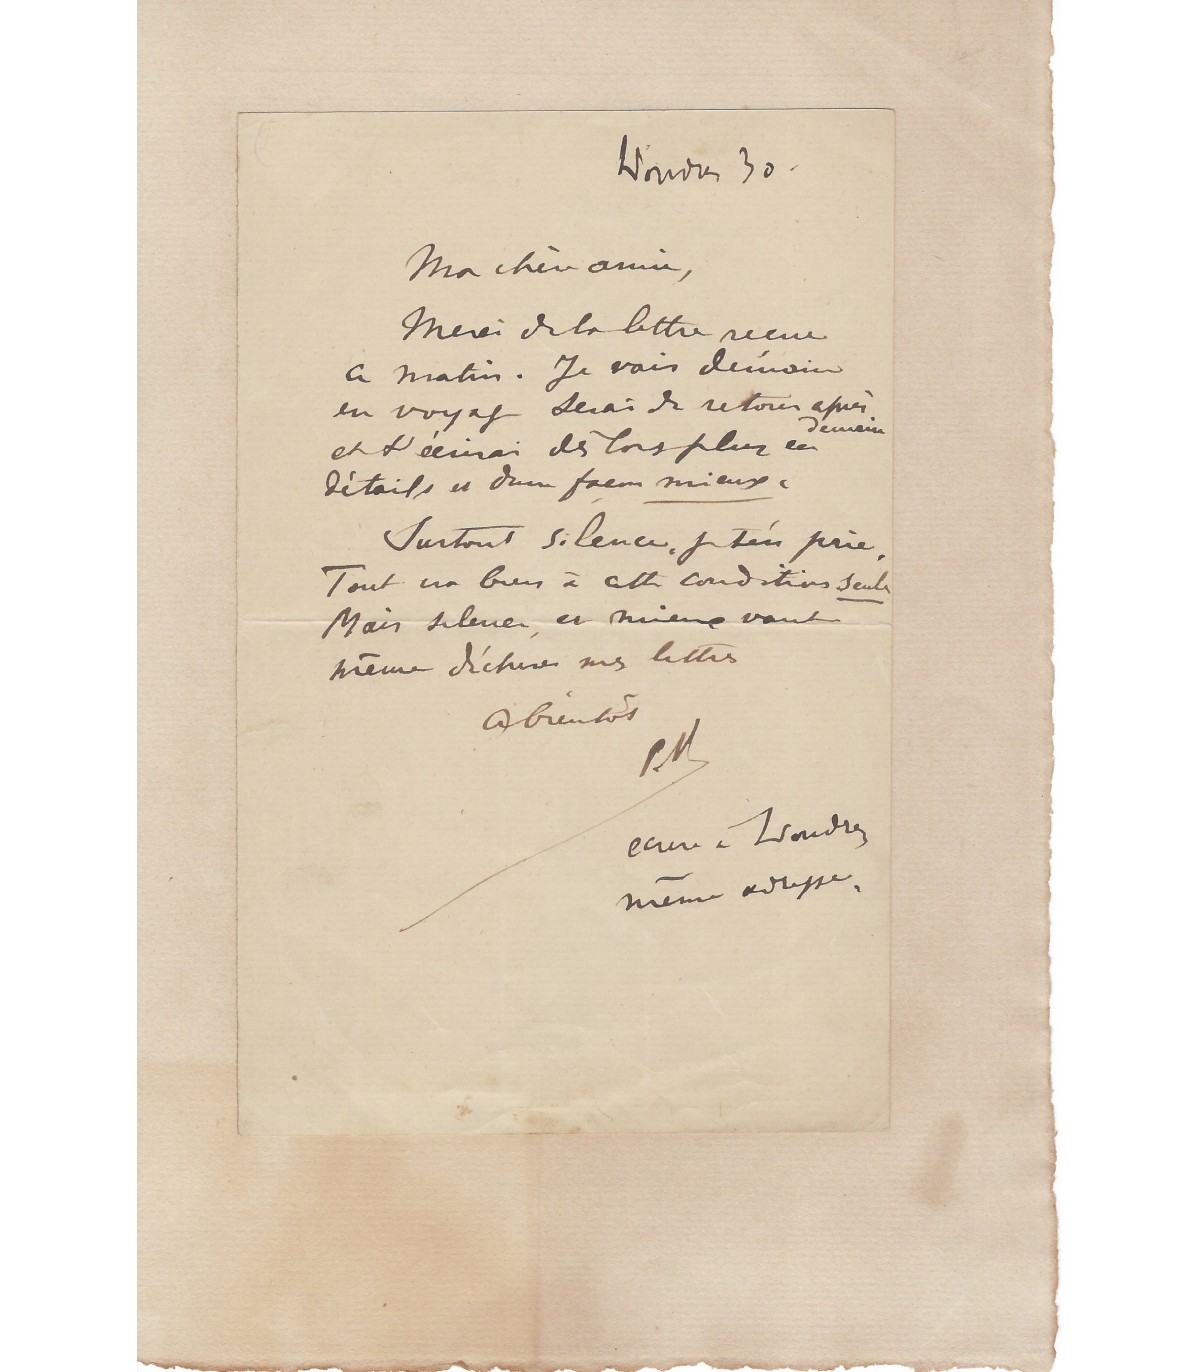 Londres 30.
Ma chère amie,
Merci de la lettre reçue
ce matin. Je vais demain
en voyage serai de retour après
demain
et t'écrirai dès lors plus en
détails et d'une façon mieux.
Surtout silence, je t'en prie,
Tout va bien à cette condition seule
Mais silence, et mieux vaut
même déchirer mes lettres
A bientôt
P.V
écrire à Londres
même adresse.